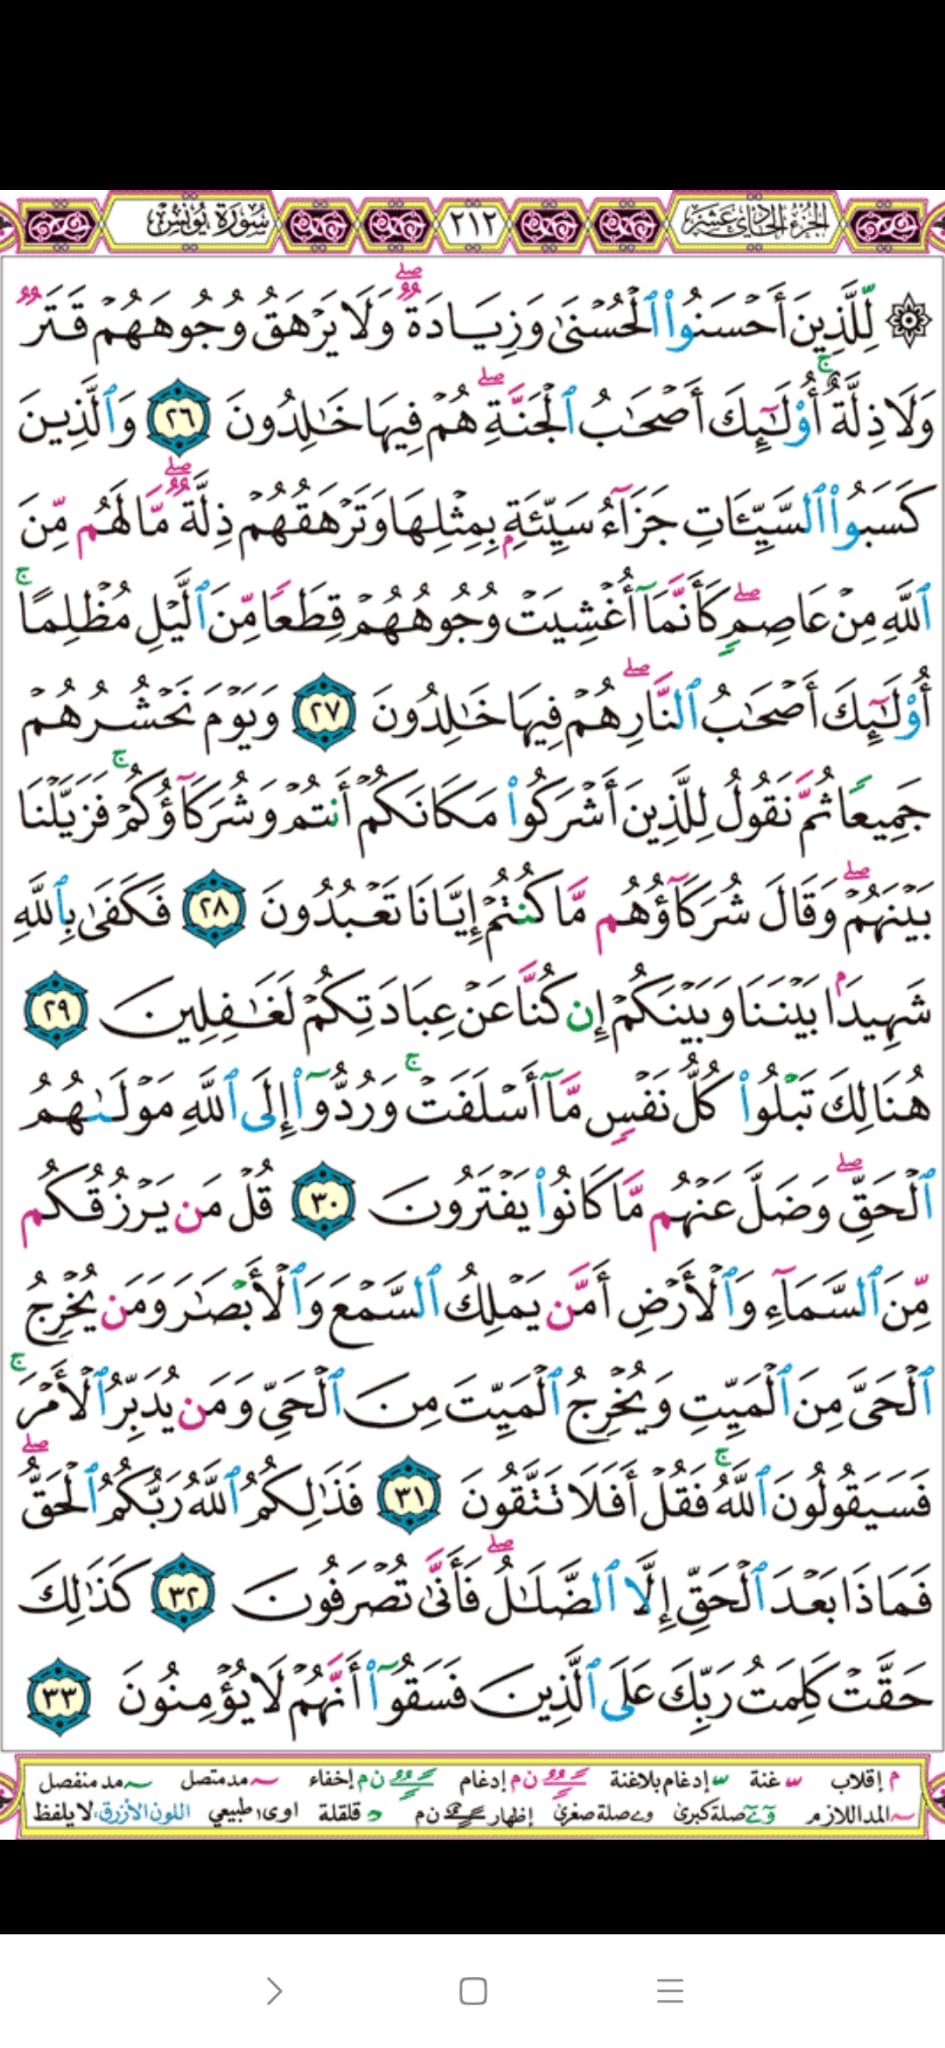 الجزء الحادي عشر ٢١٢ سورة يونس
۞ لِّلَّذِينَ أَحْسَنُوا۟ ٱلْحُسْنَىٰ وَزِيَادَةٌ ۖ وَلَا يَرْهَقُ وُجُوهَهُمْ قَتَرٌ
وَلَا ذِلَّةٌ ۚ أُو۟لَـٰٓئِكَ أَصْحَـٰبُ ٱلْجَنَّةِ ۖ هُمْ فِيهَا خَـٰلِدُونَ ٢٦ وَٱلَّذِينَ
كَسَبُوا۟ ٱلسَّيِّـَٔاتِ جَزَآءُ سَيِّئَةٍۭ بِمِثْلِهَا وَتَرْهَقُهُمْ ذِلَّةٌ ۖ مَّا لَهُم مِّنَ
ٱللَّهِ مِنْ عَاصِمٍ ۖ كَأَنَّمَآ أُغْشِيَتْ وُجُوهُهُمْ قِطَعًا مِّنَ ٱلَّيْلِ مُظْلِمًا ۚ
أُو۟لَـٰٓئِكَ أَصْحَـٰبُ ٱلنَّارِ ۖ هُمْ فِيهَا خَـٰلِدُونَ ٢٧ وَيَوْمَ نَحْشُرُهُمْ
جَمِيعًا ثُمَّ نَقُولُ لِلَّذِينَ أَشْرَكُوا۟ مَكَانَكُمْ أَنتُمْ وَشُرَكَآؤُكُمْ ۚ فَزَيَّلْنَا
بَيْنَهُمْ ۖ وَقَالَ شُرَكَآؤُهُم مَّا كُنتُمْ إِيَّانَا تَعْبُدُونَ ٢٨ فَكَفَىٰ بِٱللَّهِ
شَهِيدًۢا بَيْنَنَا وَبَيْنَكُمْ إِن كُنَّا عَنْ عِبَادَتِكُمْ لَغَـٰفِلِينَ ٢٩
هُنَالِكَ تَبْلُوا۟ كُلُّ نَفْسٍ مَّآ أَسْلَفَتْ ۚ وَرُدُّوٓا۟ إِلَى ٱللَّهِ مَوْلَـٰهُمُ
ٱلْحَقِّ ۖ وَضَلَّ عَنْهُم مَّا كَانُوا۟ يَفْتَرُونَ ٣٠ قُلْ مَن يَرْزُقُكُم
مِّنَ ٱلسَّمَآءِ وَٱلْأَرْضِ أَمَّن يَمْلِكُ ٱلسَّمْعَ وَٱلْأَبْصَـٰرَ وَمَن يُخْرِجُ
ٱلْحَىَّ مِنَ ٱلْمَيِّتِ وَيُخْرِجُ ٱلْمَيِّتَ مِنَ ٱلْحَىِّ وَمَن يُدَبِّرُ ٱلْأَمْرَ ۚ
فَسَيَقُولُونَ ٱللَّهُ ۚ فَقُلْ أَفَلَا تَتَّقُونَ ٣١ فَذَٰلِكُمُ ٱللَّهُ رَبُّكُمُ ٱلْحَقُّ ۖ
فَمَاذَا بَعْدَ ٱلْحَقِّ إِلَّا ٱلضَّلَـٰلُ ۖ فَأَنَّىٰ تُصْرَفُونَ ٣٢ كَذَٰلِكَ
حَقَّتْ كَلِمَتُ رَبِّكَ عَلَى ٱلَّذِينَ فَسَقُوٓا۟ أَنَّهُمْ لَا يُؤْمِنُونَ ٣٣
م إقلاب غنة إدغام بلاغنة ن م إدغام ن م إخفاء مد متصل مد منفصل
المد اللازم صلة كبرى صلة صغرى إظهار ن م قلقلة اوى طبيعي اللون الأزرق، لا يلفظ